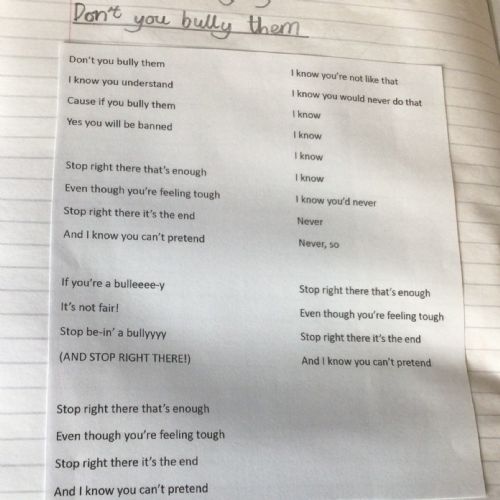 Don't you bully them
Don't you bully them
I know you understand
Cause if you bully them
Yes you will be banned
Stop right there that's enough
Even though you're feeling tough
Stop right there it's the end
And I know you can't pretend
If you're a bulleeee-y
It's not fair!
Stop be-in' a bullyyyy
(AND STOP RIGHT THERE!)
Stop right there that's enough
Even though you're feeling tough
Stop right there it's the end
And I know you can't pretend
I know you're not like that
I know you would never do that
I know
I know
I know
I know
I know you'd never
Never
Never, so
Stop right there that's enough
Even though you're feeling tough
Stop right there it's the end
And I know you can't pretend